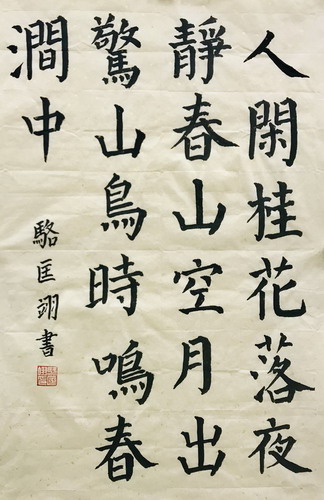 人閑桂花落夜
靜春山空月出
驚山鳥時鳴春
澗中
駱匡翊書